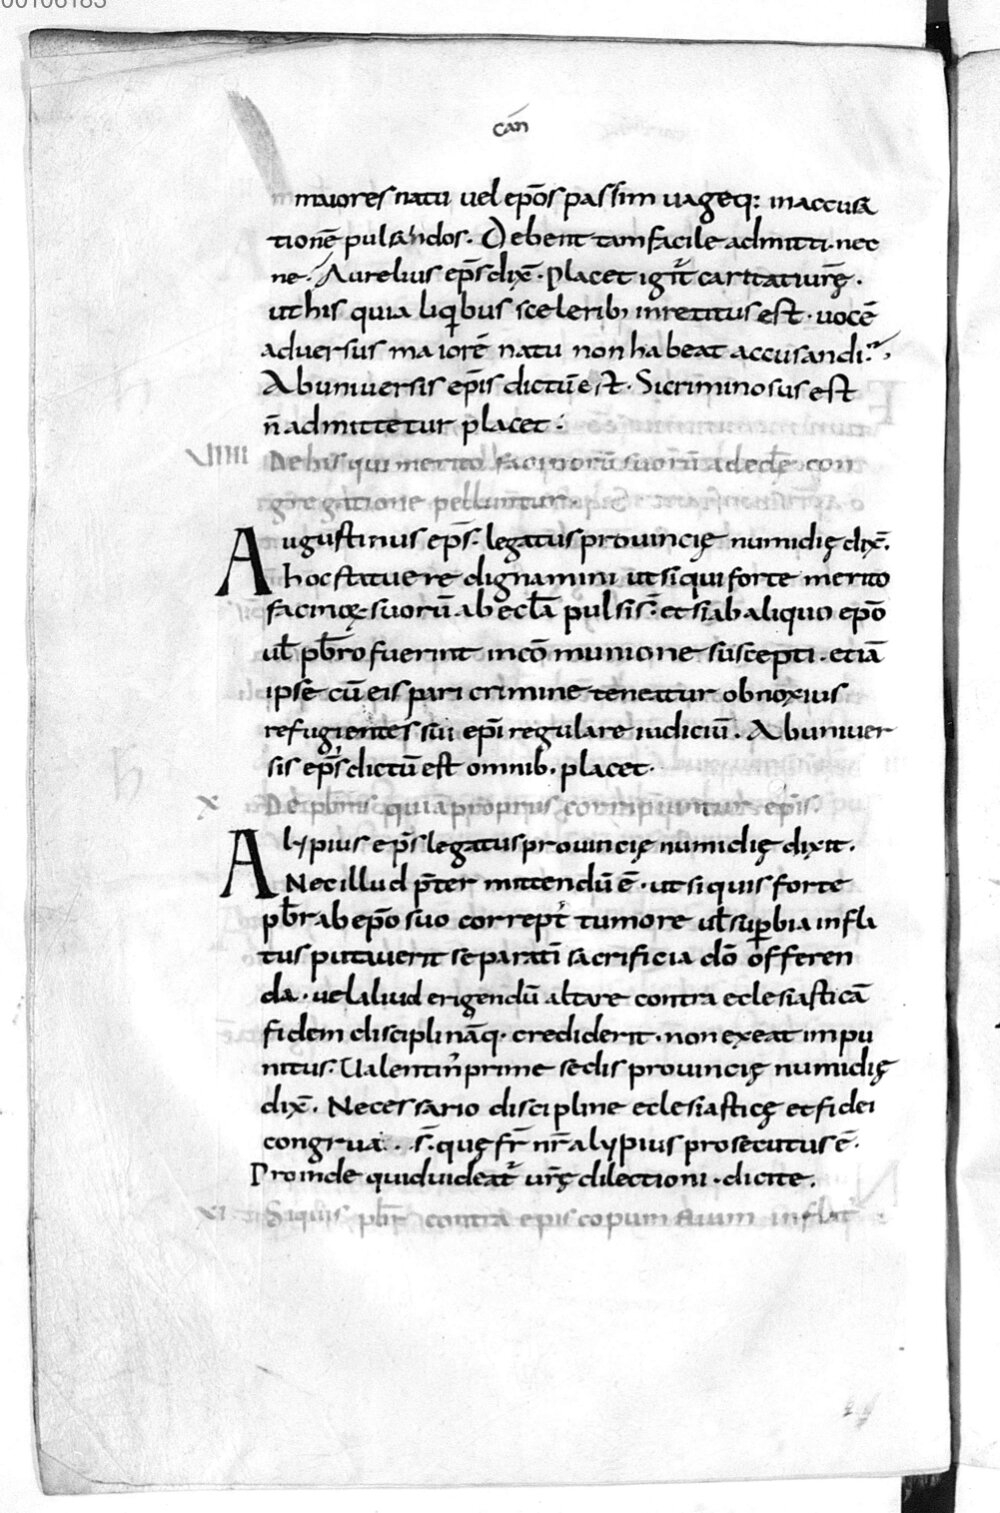 00106183
cāñ
maiores natu uel ep̄os passim uageq; in accusa
tionē pulsandos. Debent tam facile admitti. nec
ne. Aurelius ep̄s dix̄. Placet igit̄ caritati ur̄ę.
ut his qui aliq̄ibus sceleribꝰ inretitus est. uocē
aduersus maiorē natu non habeat accusandi.
Ab uniuersis ep̄is dictū est. Si criminosus est
n̄ admittetur placet.
VIIII De his qui merito facinorū suorū ad eclę con
gregatione pelluntur.
Augustinus ep̄s. legatus prouincię numidię dix̄.
hoc statuere dignamini ut si qui forte merito
facinoꝝ suorū ab ecl̄a pulsi s̄. et si ab aliquo ep̄o
ul̄ pb̄ro fuerint in cōmunione suscepti. etiā
ipse cū eis pari crimine teneatur obnoxius
refugientes sui ep̄i regulare iudiciū. Ab uniuer
sis ep̄s dictū est omnib. placet.
X De pb̄ris qui a propriis corripiuntur ep̄is.
Alypius ep̄s legatus prouincię numidię dixit.
Nec illud p̄termittendū ē. ut si quis forte
pb̄r ab ep̄o suo corrept̄ tumore ul̄ suꝑbia infla
tus putuuerit separatī sacrificia dō offeren
da. uel aliud erigendū altare contra eclesiasticā
fidem disciplināq. crediderit. non exeat inpu
nitus. Ualentin̄ prime sedis prouincię numidię
dix̄. Necessario discipline eclesiasticę et fidei
congrua. s̄. quę fr̄ nr̄ alypius prosecutus ē.
Proinde quid uideat̄ ur̄ę dilectioni. dicite.
XI Si quis pb̄r contra episcopum suum inflat̄